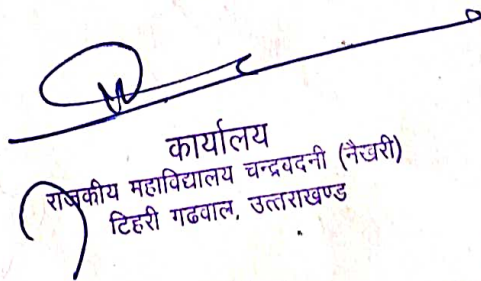 कार्यालय
राजकीय महाविद्यालय चन्द्रवदनी (नैखरी)
टिहरी गढवाल, उत्तराखण्ड